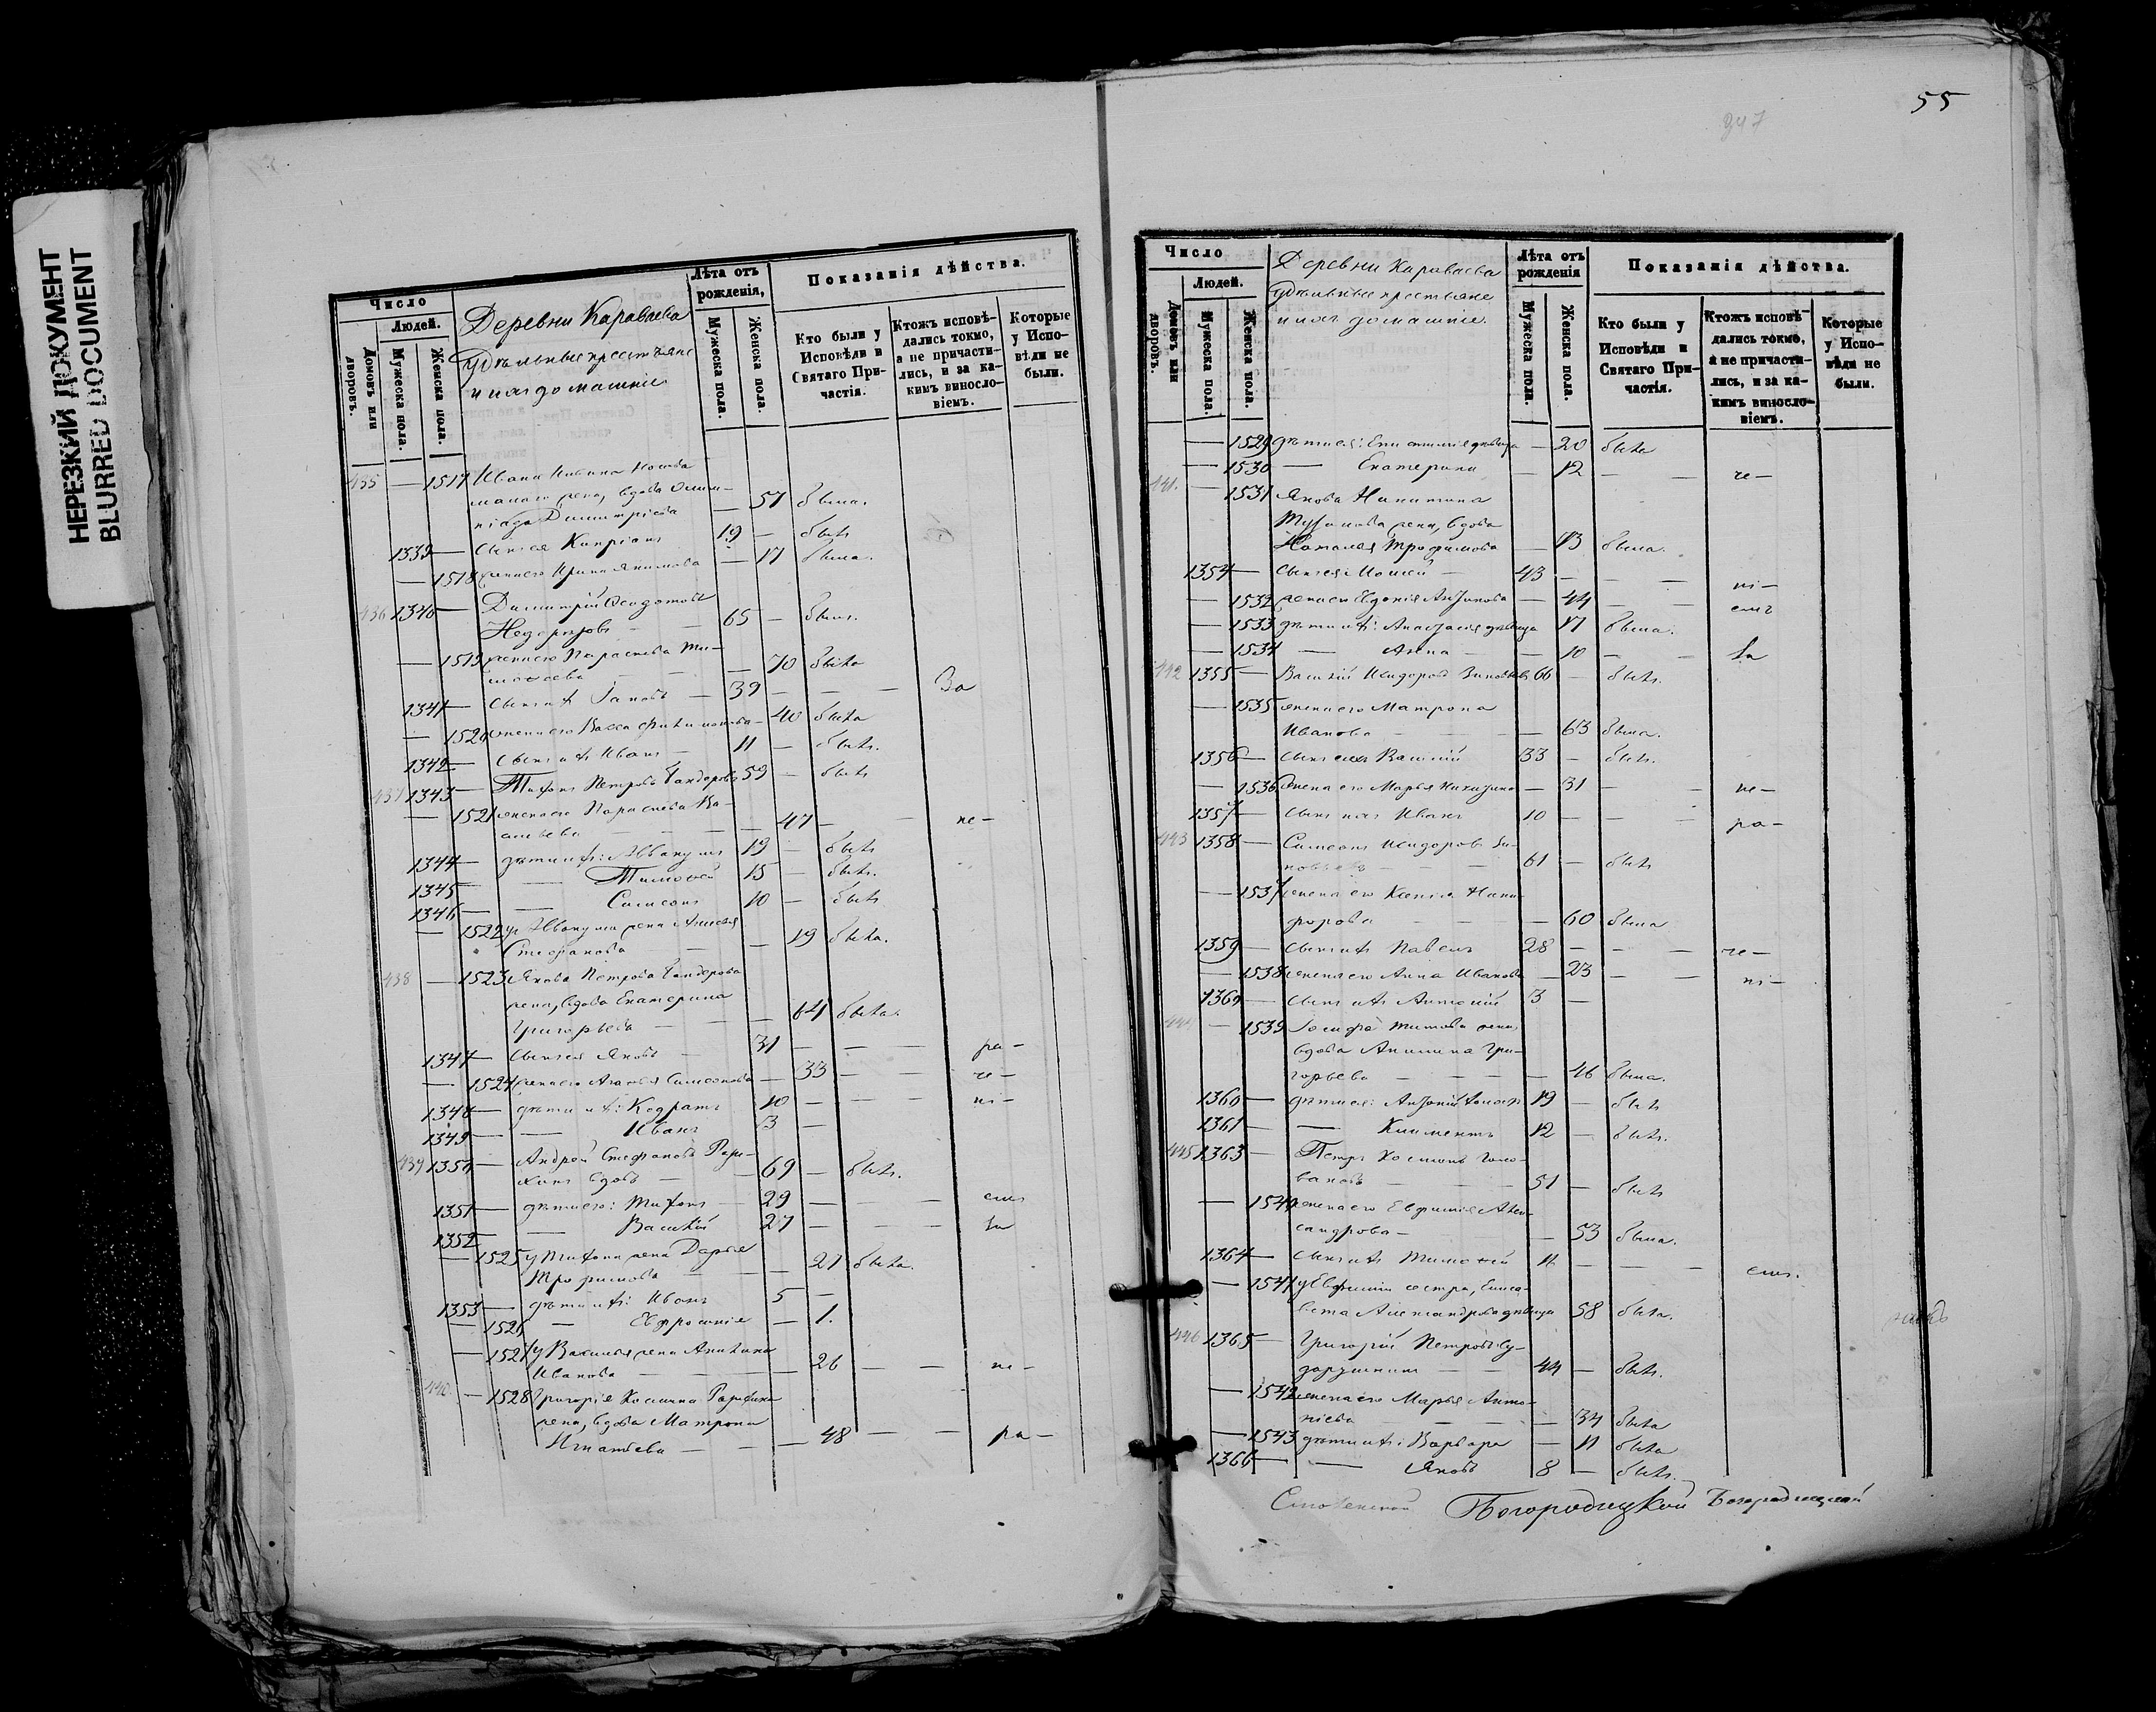 НЕРЕЗКИЙ ДОКУМЕНТ
BLURRED DOCUMENT
Число
Людей.
Домовъ или дворовъ.
Мужеска пола.
Женска пола.
Деревни Караваева
Удѣльные крестьяне
и ихъ домашніе
Лѣта отъ рожденія,
Мужеска пола.
Женска пола.
Показанія дѣйства.
Кто были у Исповѣди и Святаго Причастія.
Ктожъ исповѣдались токмо, а не причастились, и за какимъ винословіемъ.
Которые у Исповѣди не были.
435 — 1517 Ивана
жена, вдова Олим-
піада Димитріева — 57 была.
1339 — сынъ ея Кипріанъ 19 — былъ
— 1518 жена его Ирина Акимова — 17 была.
436 1340 — Димитрій Ѳеодотовъ
65 — былъ.
— 1519 жена его Параскева Ти-
моѳеева — 70 была
1341 — сынъ ихъ Іаковъ — 39 — — — За
— 1520 жена его Васса — 40 была
1342 — сынъ ихъ Иванъ — 11 — былъ.
437 1343 — Тихонъ Петровъ 59 — былъ
— 1521 жена его Параскева Ва-
сильева — 47 — — не-
1344 — дѣти ихъ: Аввакумъ 19 — былъ
1345 — — Тимоѳей 15 — былъ.
1346 — — Симеонъ 10 — былъ
— 1522 у Аввакума жена
Стефанова — 19 была.
438 — 1523 Якова Петрова
жена, вдова Екатерина
Григорьева — 64 была.
1347 — сынъ ея Яковъ — 31 — — — ра-
— 1524 жена его Агафья Симеонова — 33 — — че-
1348 — дѣти ихъ: Кодратъ 10 — — — ні-
1349 — — Иванъ 3 —
439 1350 — Андрей Стефановъ
вдовъ — 69 — былъ.
1351 — дѣти его: Тихонъ — 29 — — — емъ
1352 — — Василій 27 — — — за
— 1525 у Тихона жена Дарья
Трофимова — 27 была.
1353 — дѣти ихъ: Иванъ 5 —
— 1526 — Евфросинія — 1.
— 1527 у Василья жена
Иванова — 26 — — не-
440 — 1528 Григорія Космина
жена, вдова Матрона
Игнатьева — — 48 — — ра-
55
347
Число
Людей.
Домовъ или дворовъ.
Мужеска пола.
Женска пола.
Деревни Караваева
Удѣльные крестьяне
и ихъ домашніе.
Лѣта отъ рожденія
Мужеска пола.
Женска пола.
Показанія дѣйства.
Кто были у Исповѣди и Святаго Причастія.
Ктожъ исповѣдались токмо, а не причастились, и за какимъ винословіемъ.
Которые у Исповѣди не были.
— 1529 дѣти ея: дѣвица — 20 была
— 1530 — Екатерина — 12 — — че-
441. — 1531 Якова Никитина
жена, вдова
Наталья Трофимова — 73 была.
1354 — сынъ ея Моисей — 43 — — — ні-
— 1532 жена его Евдокія — 44 — — емъ
— 1533 дѣти ихъ: Анастасія дѣвица 17 была.
— 1534 — Анна — — 10 — — за
442 1355 — Василій Исидоровъ Зиновьевъ 66 — былъ.
— 1535 жена его Матрона
Иванова — — 63 была.
1356 — сынъ ихъ Василій 33 — былъ.
— 1536 жена его Марья — 31 — — не-
1357 — сынъ ихъ Иванъ 10 — — — ра-
443 1358 — Симеонъ Исидоровъ Зи-
новьевъ — 61 — былъ
— 1537 жена его Ксенія Ники-
форова — 60 была
1359 — сынъ ихъ Павелъ 28 — — — че-
— 1538 жена его Анна Иванова — 23 — — ні-
1360 — сынъ ихъ Антоній 3 —
444 — 1539 Іосифа Титова жена,
вдова Акилина Гри-
горьева — — — 46 была.
1360 — дѣти ея: 19 — былъ
1361 — — Климентъ 12 — былъ.
445 1363 — Петръ Косминъ Голо-
вановъ — 51 — былъ
— 1540 жена его Евфимія Алек-
сандрова — — 53 была.
1364 — сынъ ихъ Тимоѳей 11 — — — емъ.
— 1541 у Евфиміи сестра, Елиса-
вета Александрова дѣвица 58 была.
446 1365 — Григорій Петровъ Су-
дарушкинъ — 44 — былъ.
— 1542 жена его Марья Анто-
ніева — — 34 была
— 1543 дѣти ихъ: Варвара — 11 была
1366 — — Яковъ 8 — былъ.
Богородицкой Богородицкой